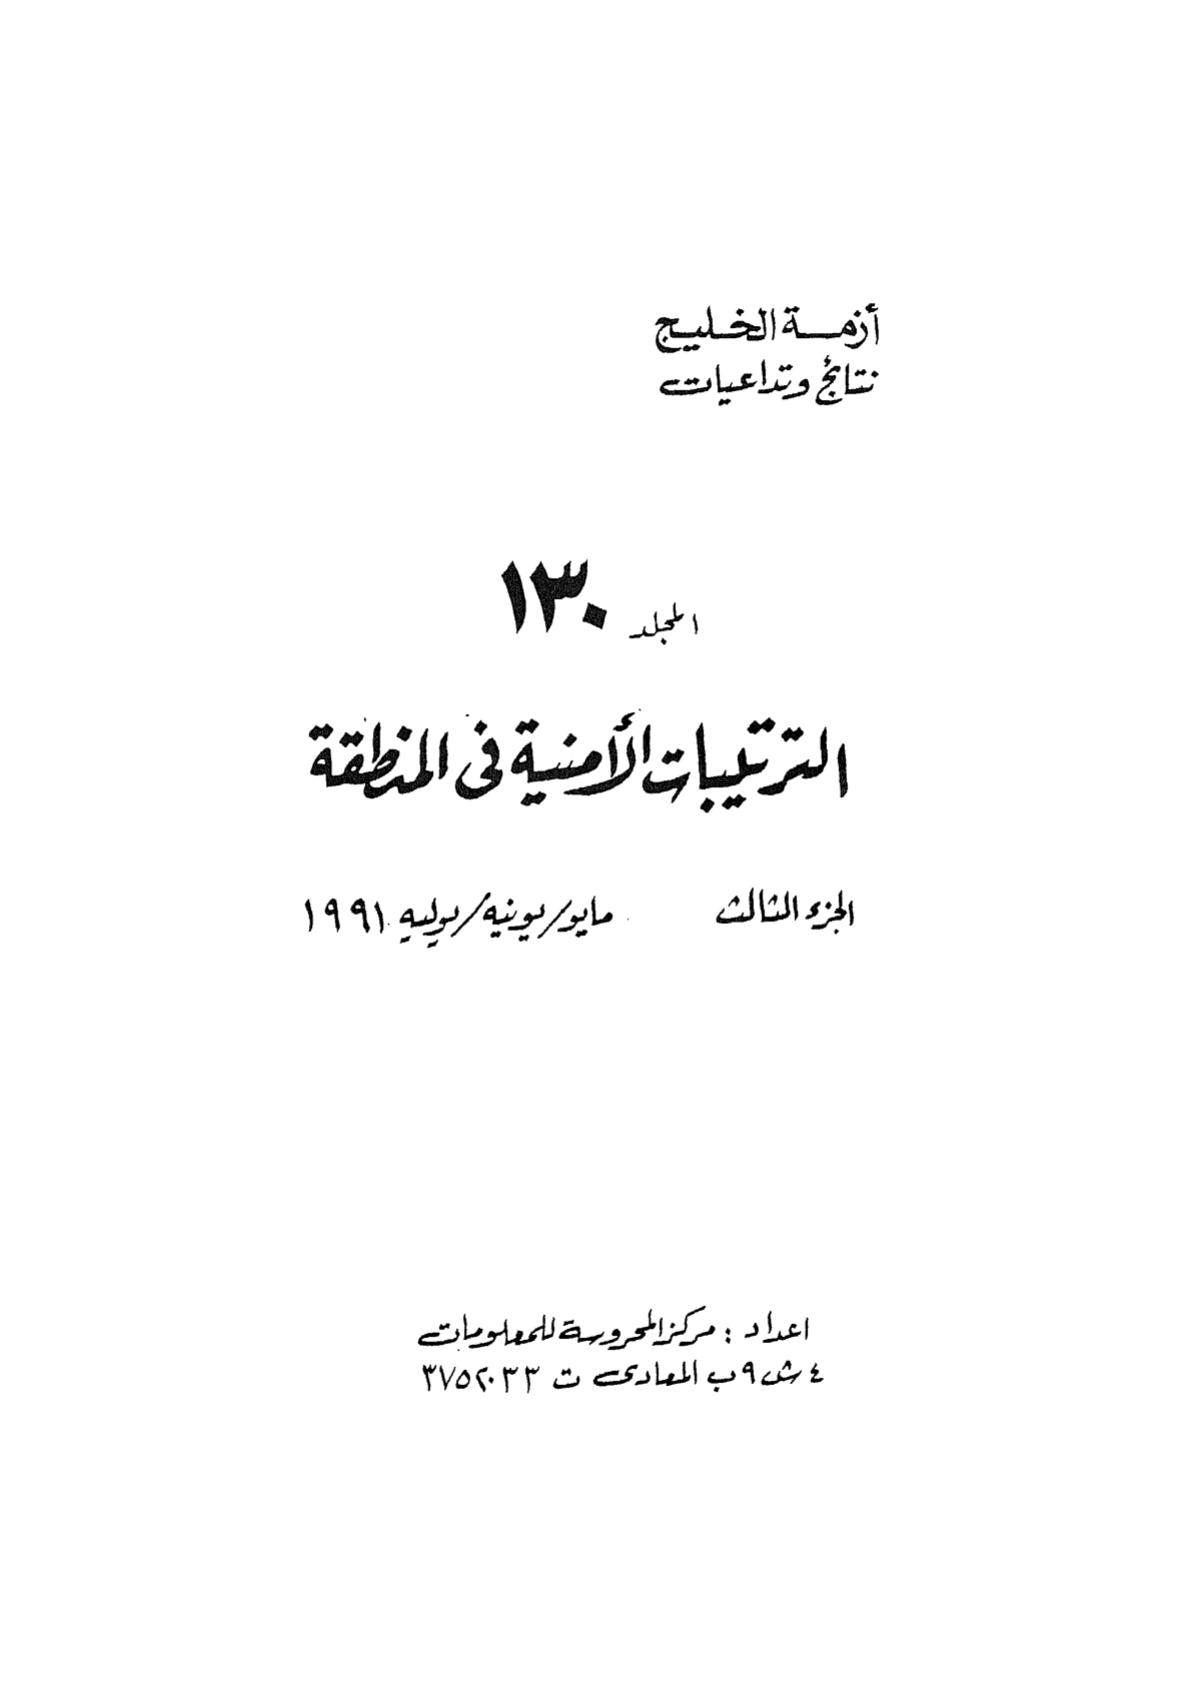 أزمة الخليج
نتائج وتداعيات
المجلد ١٣٠
الترتيبات الأمنية فى المنطقة
الجزء الثالث مايو/يونيه/يوليه ١٩٩١
اعداد : مركز المحروسة للمعلومات
٤ ش ٩ب المعادى ت ٣٧٥٢٠٣٣